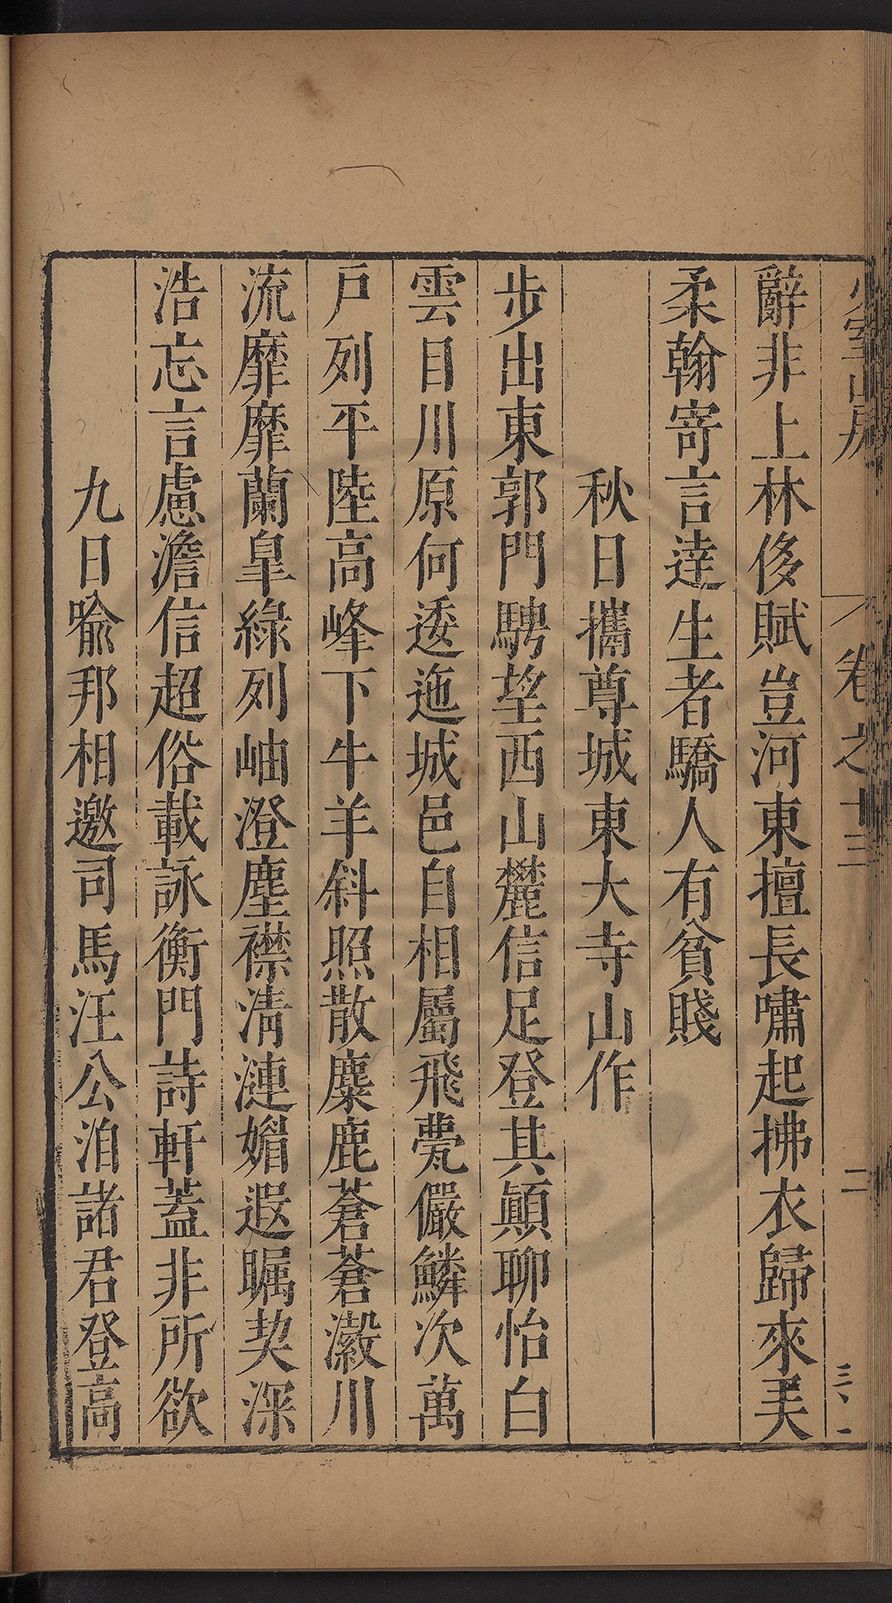 少室山房
卷之十三
二
三、一
辭非上林侈賦豈河東擅長嘯起拂衣歸來美
柔翰寄言達生者驕人有貧賤
秋日攜尊城東大寺山作
步出東郭門騁望西山麓信足登其顛聊怡白
雲目川原何逶迤城邑自相屬飛甍儼鱗次萬
戶列平陸高峰下牛羊斜照散麋鹿蒼蒼瀫川
流靡靡蘭皐綠列岫澄塵襟淸漣媚遐矚契深
浩忘言慮澹信超俗載詠衡門詩軒蓋非所欲
九日喩邦相邀司馬汪公洎諸君登高